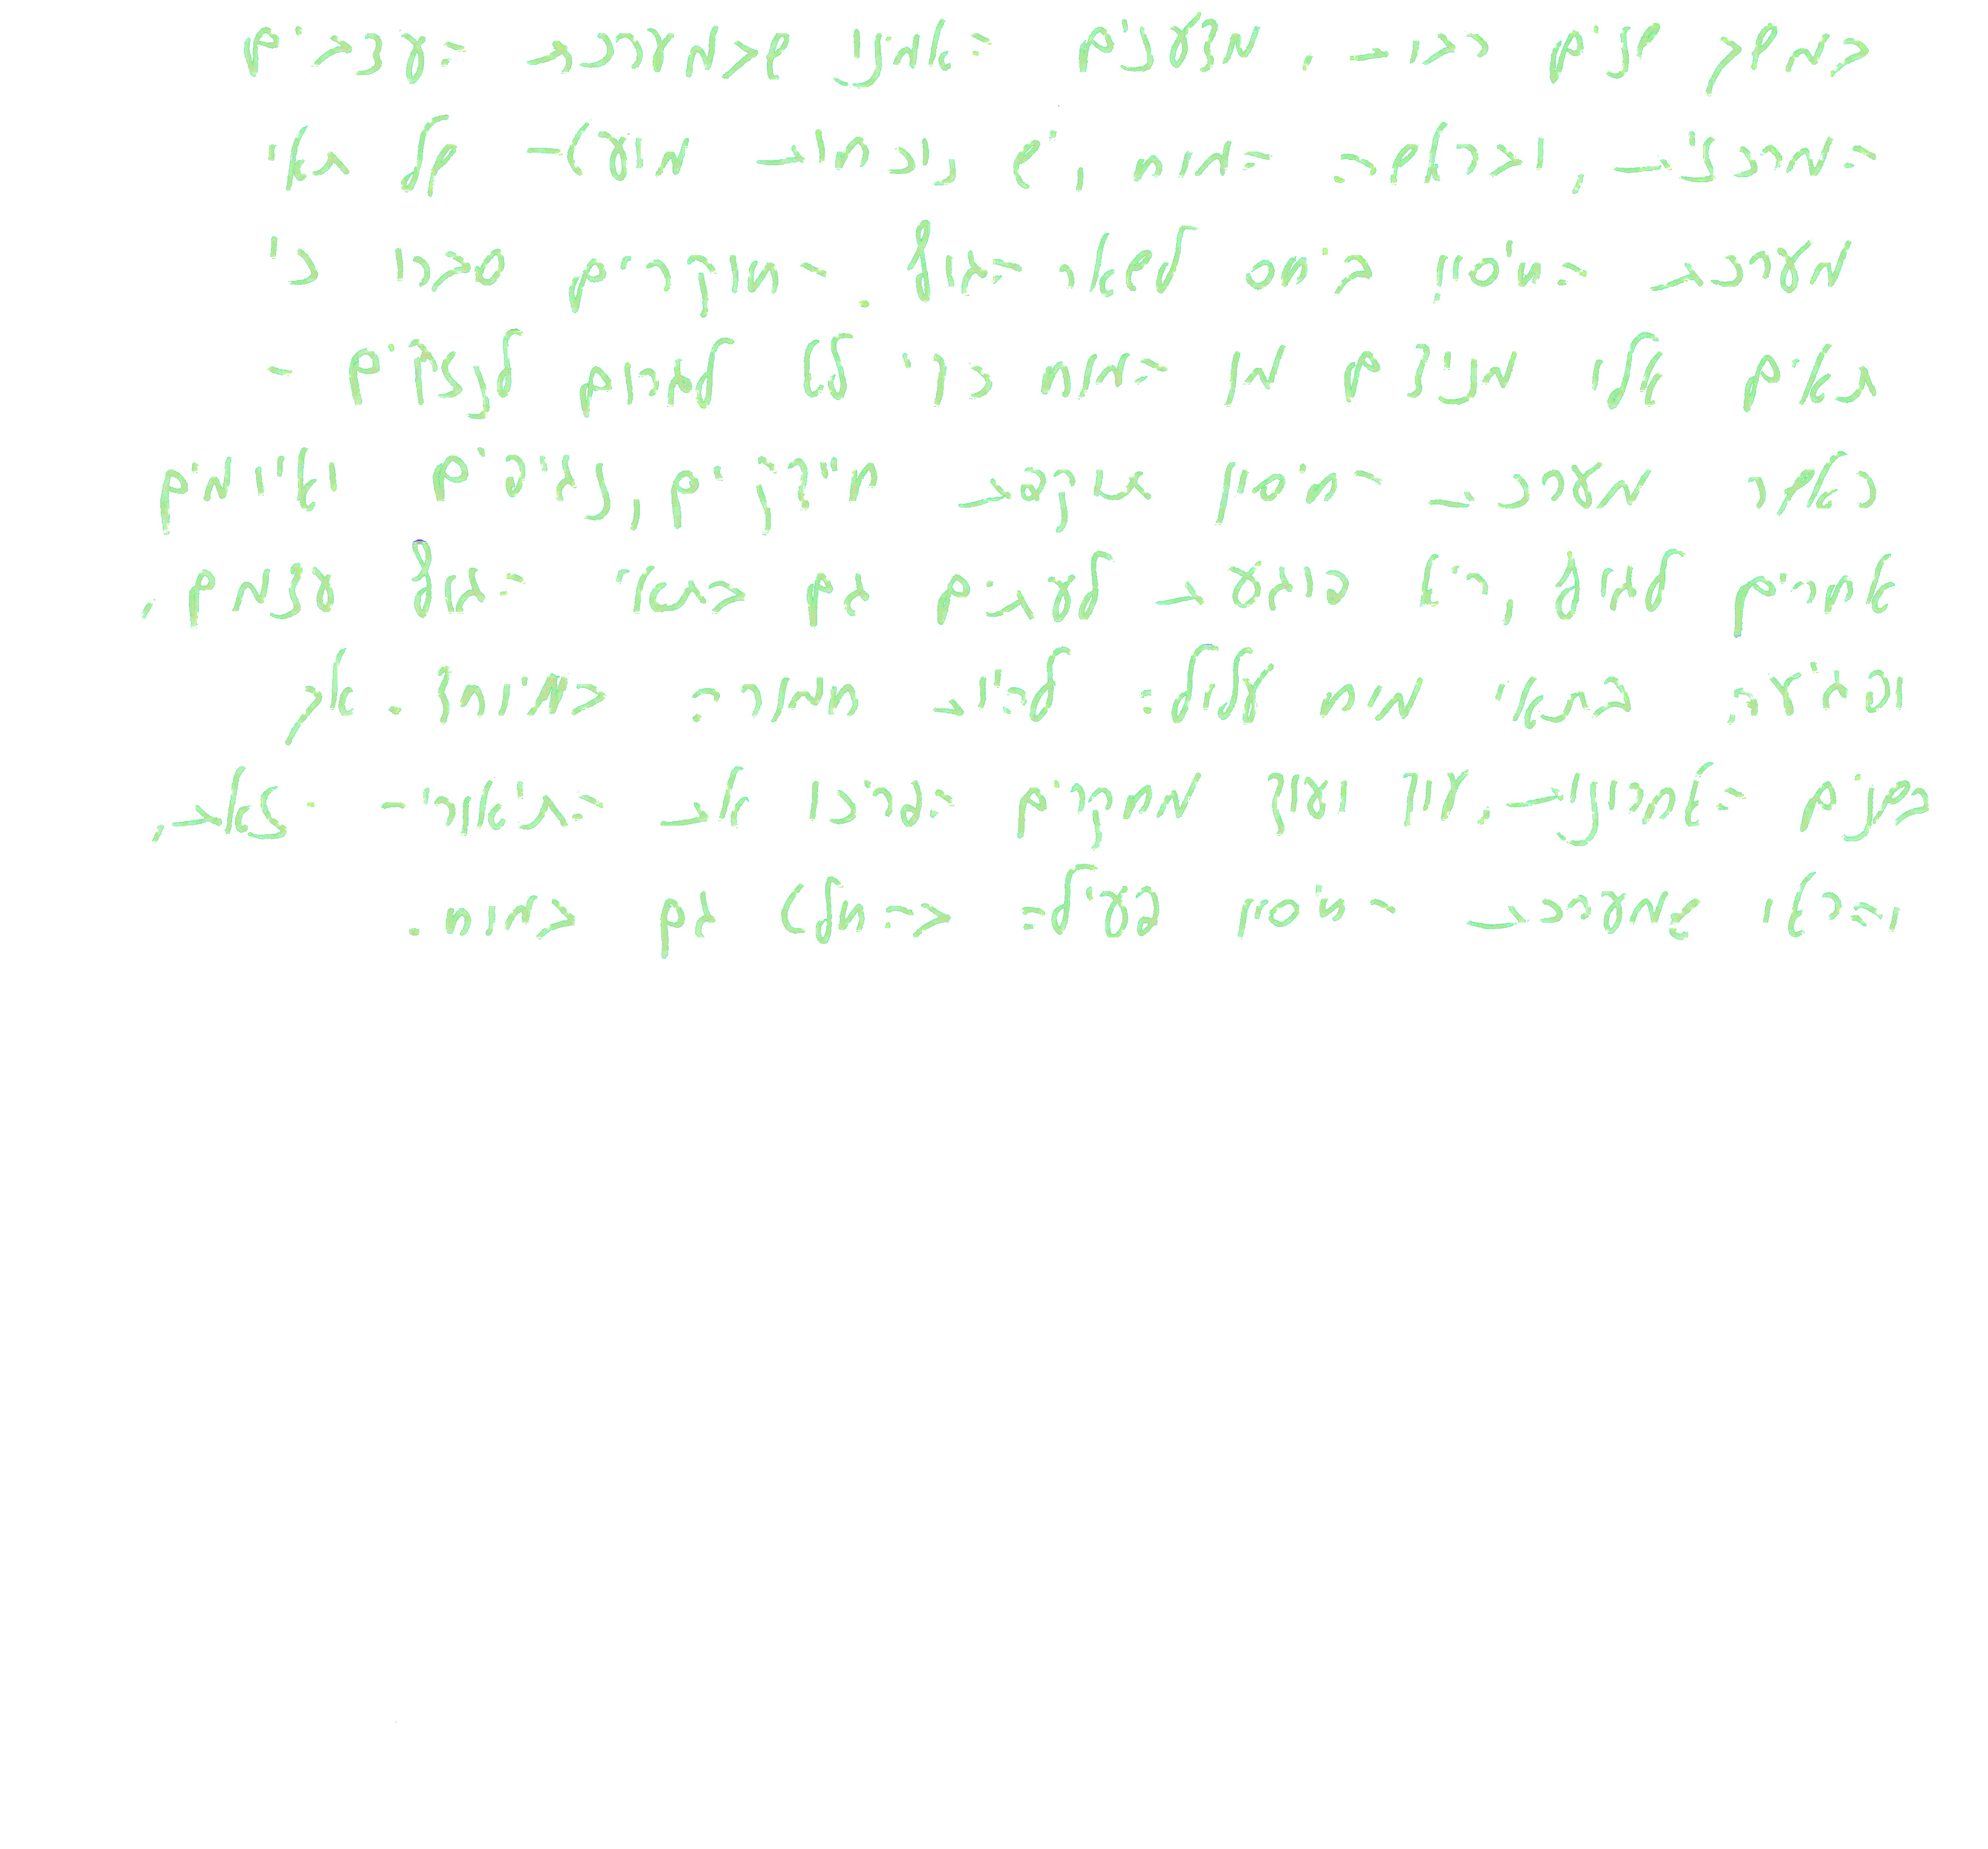 במשך שנים רבות, מדענים האמינו שבמערכת העצבים
המרכזית, ובראשה המוח, יש נוכחות מועטה של תאי
מערכת החיסון ביחס לשאר הגוף. החוקרים סברו כי
תאים אלו מן המוח כדי לא לגרום לנזקים -
כאשר מערכת החיסון תוקפת חיידקים, נגיפים ואיומים
אחרים לגוף, היא פוגעת לעתים גם בתאי הגוף עצמם,
ופגיעה בתאי מוח עלולה להיות חמורה במיוחד. אך
בשנים האחרונות, עוד ועוד מחקרים הפריכו את התיאוריה הזאת,
והראו שמערכת החיסון פעילה בהחלט גם במוח.